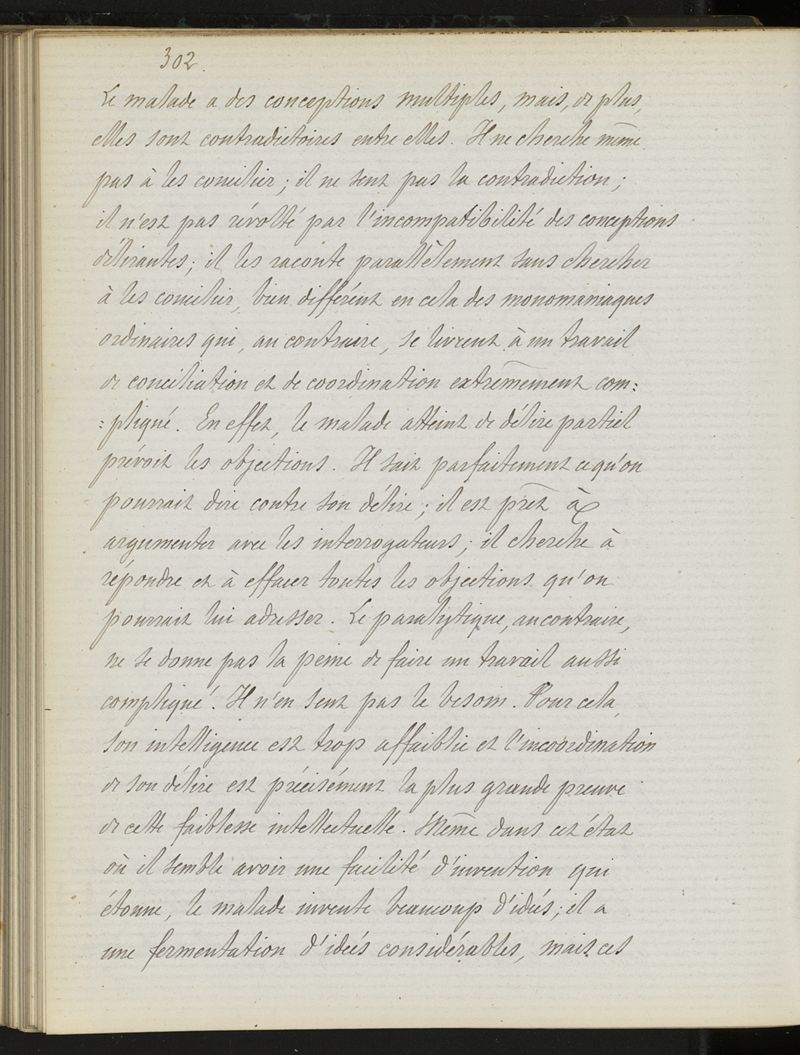 302.
Le malade a des conceptions multiples, mais, de plus,
elles sont contradictoires entre elles. Il ne cherche même
pas à les concilier ; il ne sent pas la contradiction ;
il n'est pas révolté par l'incompatibilité des conceptions
délirantes ; il les raconte parallèlement sans chercher
à les concilier, bien différent en cela des monomaniaques
ordinaires qui, au contraire, se livrent à un travail
de conciliation et de coordination extrêmement com:
:pliqué. En effet, le malade atteint de délire partiel
prévoit les objections. Il sait parfaitement ce qu'on
pourrait dire contre son délire ; il est prêt à
argumenter avec les interrogateurs ; il cherche à
répondre et à effacer toutes les objections qu'on
pourrait lui adresser. Le paralytique, au contraire,
ne se donne pas la peine de faire un travail aussi
compliqué. Il n'en sent pas le besoin. Pour cela,
son intelligence est trop affaiblie et l'incoordination
de son délire est précisément la plus grande preuve
de cette faiblesse intellectuelle. Même dans cet état
où il semble avoir une facilité d'invention qui
étonne, le malade invente beaucoup d'idées ; il a
une fermentation d'idées considérables, mais ces